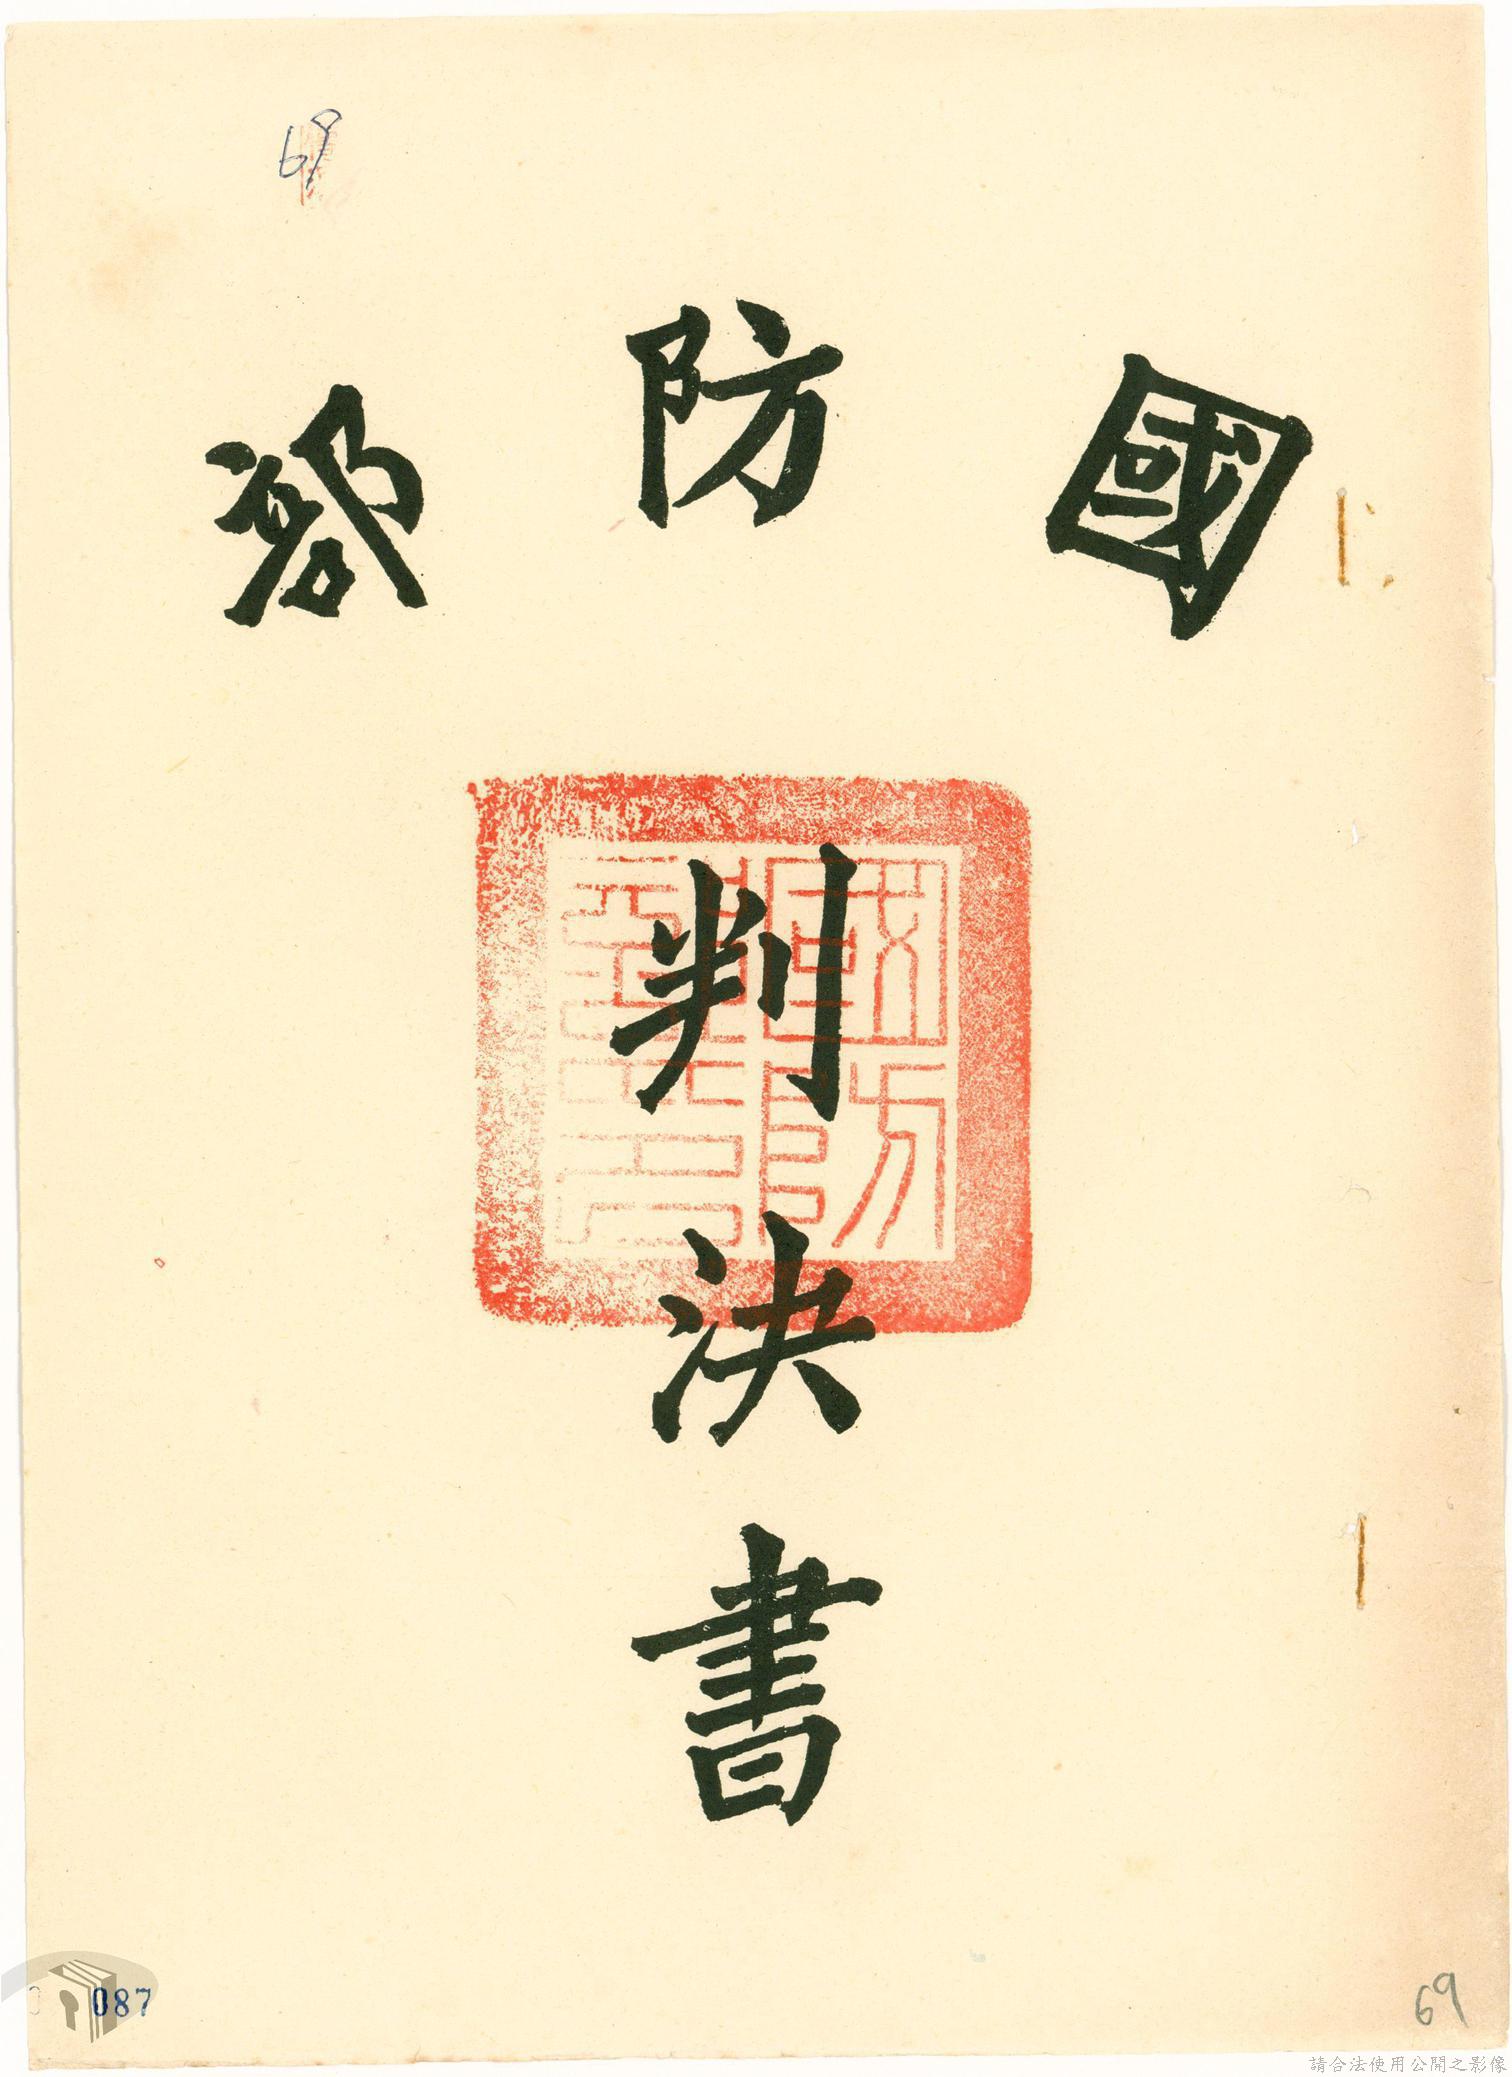 69
國防部
判決書
國防部印
087
69
請合法使用公開之影像